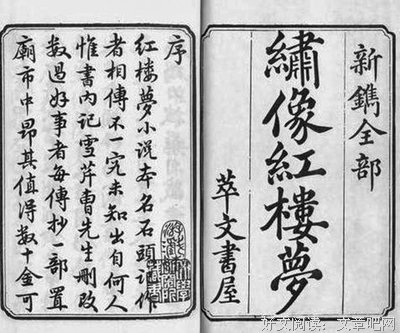 新鐫全部
繡像紅樓夢
萃文書屋
序
紅樓夢小說本名石頭記作
者相傳不一究未知出自何人
惟書內記雪芹曹先生刪改
數過好事者每傳抄一部置
廟市中昂其值得數十金可
好文阅读:文章吧网